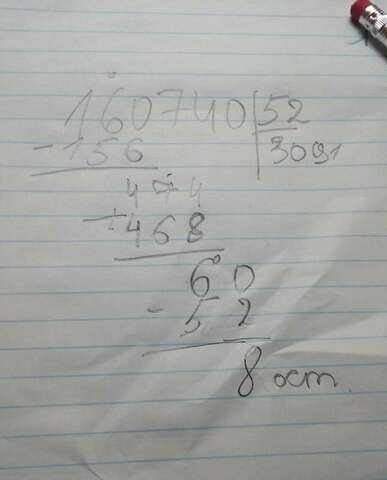 160740 52
-156 3091
474
-468
60
-52
8 ост.